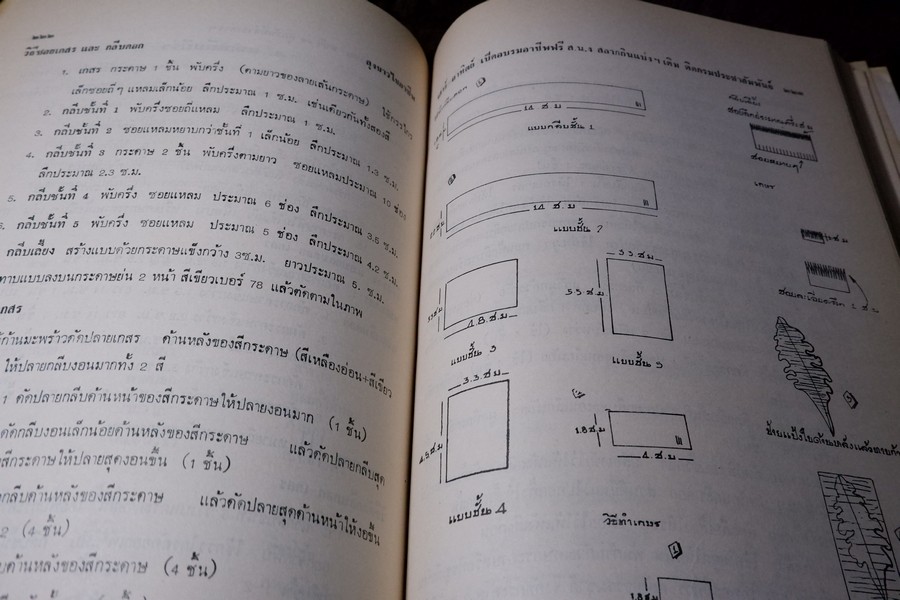 ๒๒๒
วิธีซอยเกสร และ กลีบดอก
1. เกสร กระดาษ 1 ชิ้น พับครึ่ง (ตามยาวของลายเส้นกระดาษ) ใช้กรรไกร
เล็กซอยถี่ๆ แหลมเล็กน้อย ลึกประมาณ 1 ซ.ม. เช่นเดียวกันทั้งสองสี
2. กลีบชั้นที่ 1 พับครึ่งซอยถี่แหลม ลึกประมาณ 1 ซ.ม.
3. กลีบชั้นที่ 2 ซอยแหลมหยาบกว่าชั้นที่ 1 เล็กน้อย ลึกประมาณ 1.3 ซ.ม.
4. กลีบชั้นที่ 3 กระดาษ 2 ชั้น พับครึ่งตามยาว ซอยแหลมประมาณ 10 ช่อง
ลึกประมาณ 2.3 ซ.ม.
5. กลีบชั้นที่ 4 พับครึ่ง ซอยแหลม ประมาณ 6 ช่อง ลึกประมาณ 3.5 ซ.ม.
6. กลีบชั้นที่ 5 พับครึ่ง ซอยแหลม ประมาณ 5 ช่อง ลึกประมาณ 4.2 ซ.ม.
กลีบเลี้ยง สร้างแบบด้วยกระดาษแข็งกว้าง 3ซ.ม. ยาวประมาณ 5 ซ.ม.
ทาบแบบลงบนกระดาษย่น 2 หน้า สีเขียวเบอร์ 78 แล้วตัดตามในภาพ
เกสร
ก้านมะพร้าวดัดปลายเกสร ด้านหลังของสีกระดาษ (สีเหลืองอ่อน+สีเขียว
ให้ปลายกลีบงอนมากทั้ง 2 สี
1 ดัดปลายกลีบด้านหน้าของสีกระดาษให้ปลายงอนมาก (1 ชั้น)
ดัดกลีบงอนเล็กน้อยด้านหลังของสีกระดาษ แล้วดัดปลายกลีบสุด
สีกระดาษให้ปลายสุดงอนขึ้น (1 ชั้น)
กลีบด้านหลังของสีกระดาษ แล้วดัดปลายสุดด้านหน้าให้งอขึ้น
2 (4 ชั้น)
ด้านหลังของสีกระดาษ (4 ชั้น)
อาทิตย์ เปิดอบรมอาชีพฟรี ส.น.ง สลากกินแบ่งฯ เดิม ติดกรมประชาสัมพันธ์ ๒๒๓
14 ซ.ม
แบบกลีบชั้น 1
14 ซ.ม
แบบชั้น 2
4.8 ซ.ม
แบบชั้น 3
3.3 ซ.ม
5.5 ซ.ม
แบบชั้น 5
3.3. ซ.ม
4.5 ซ.ม
แบบชั้น 4
1.8 ซ.ม
4 ซ.ม
เกสร
วิธีทำเกษร
1
1.8 ซ.ม